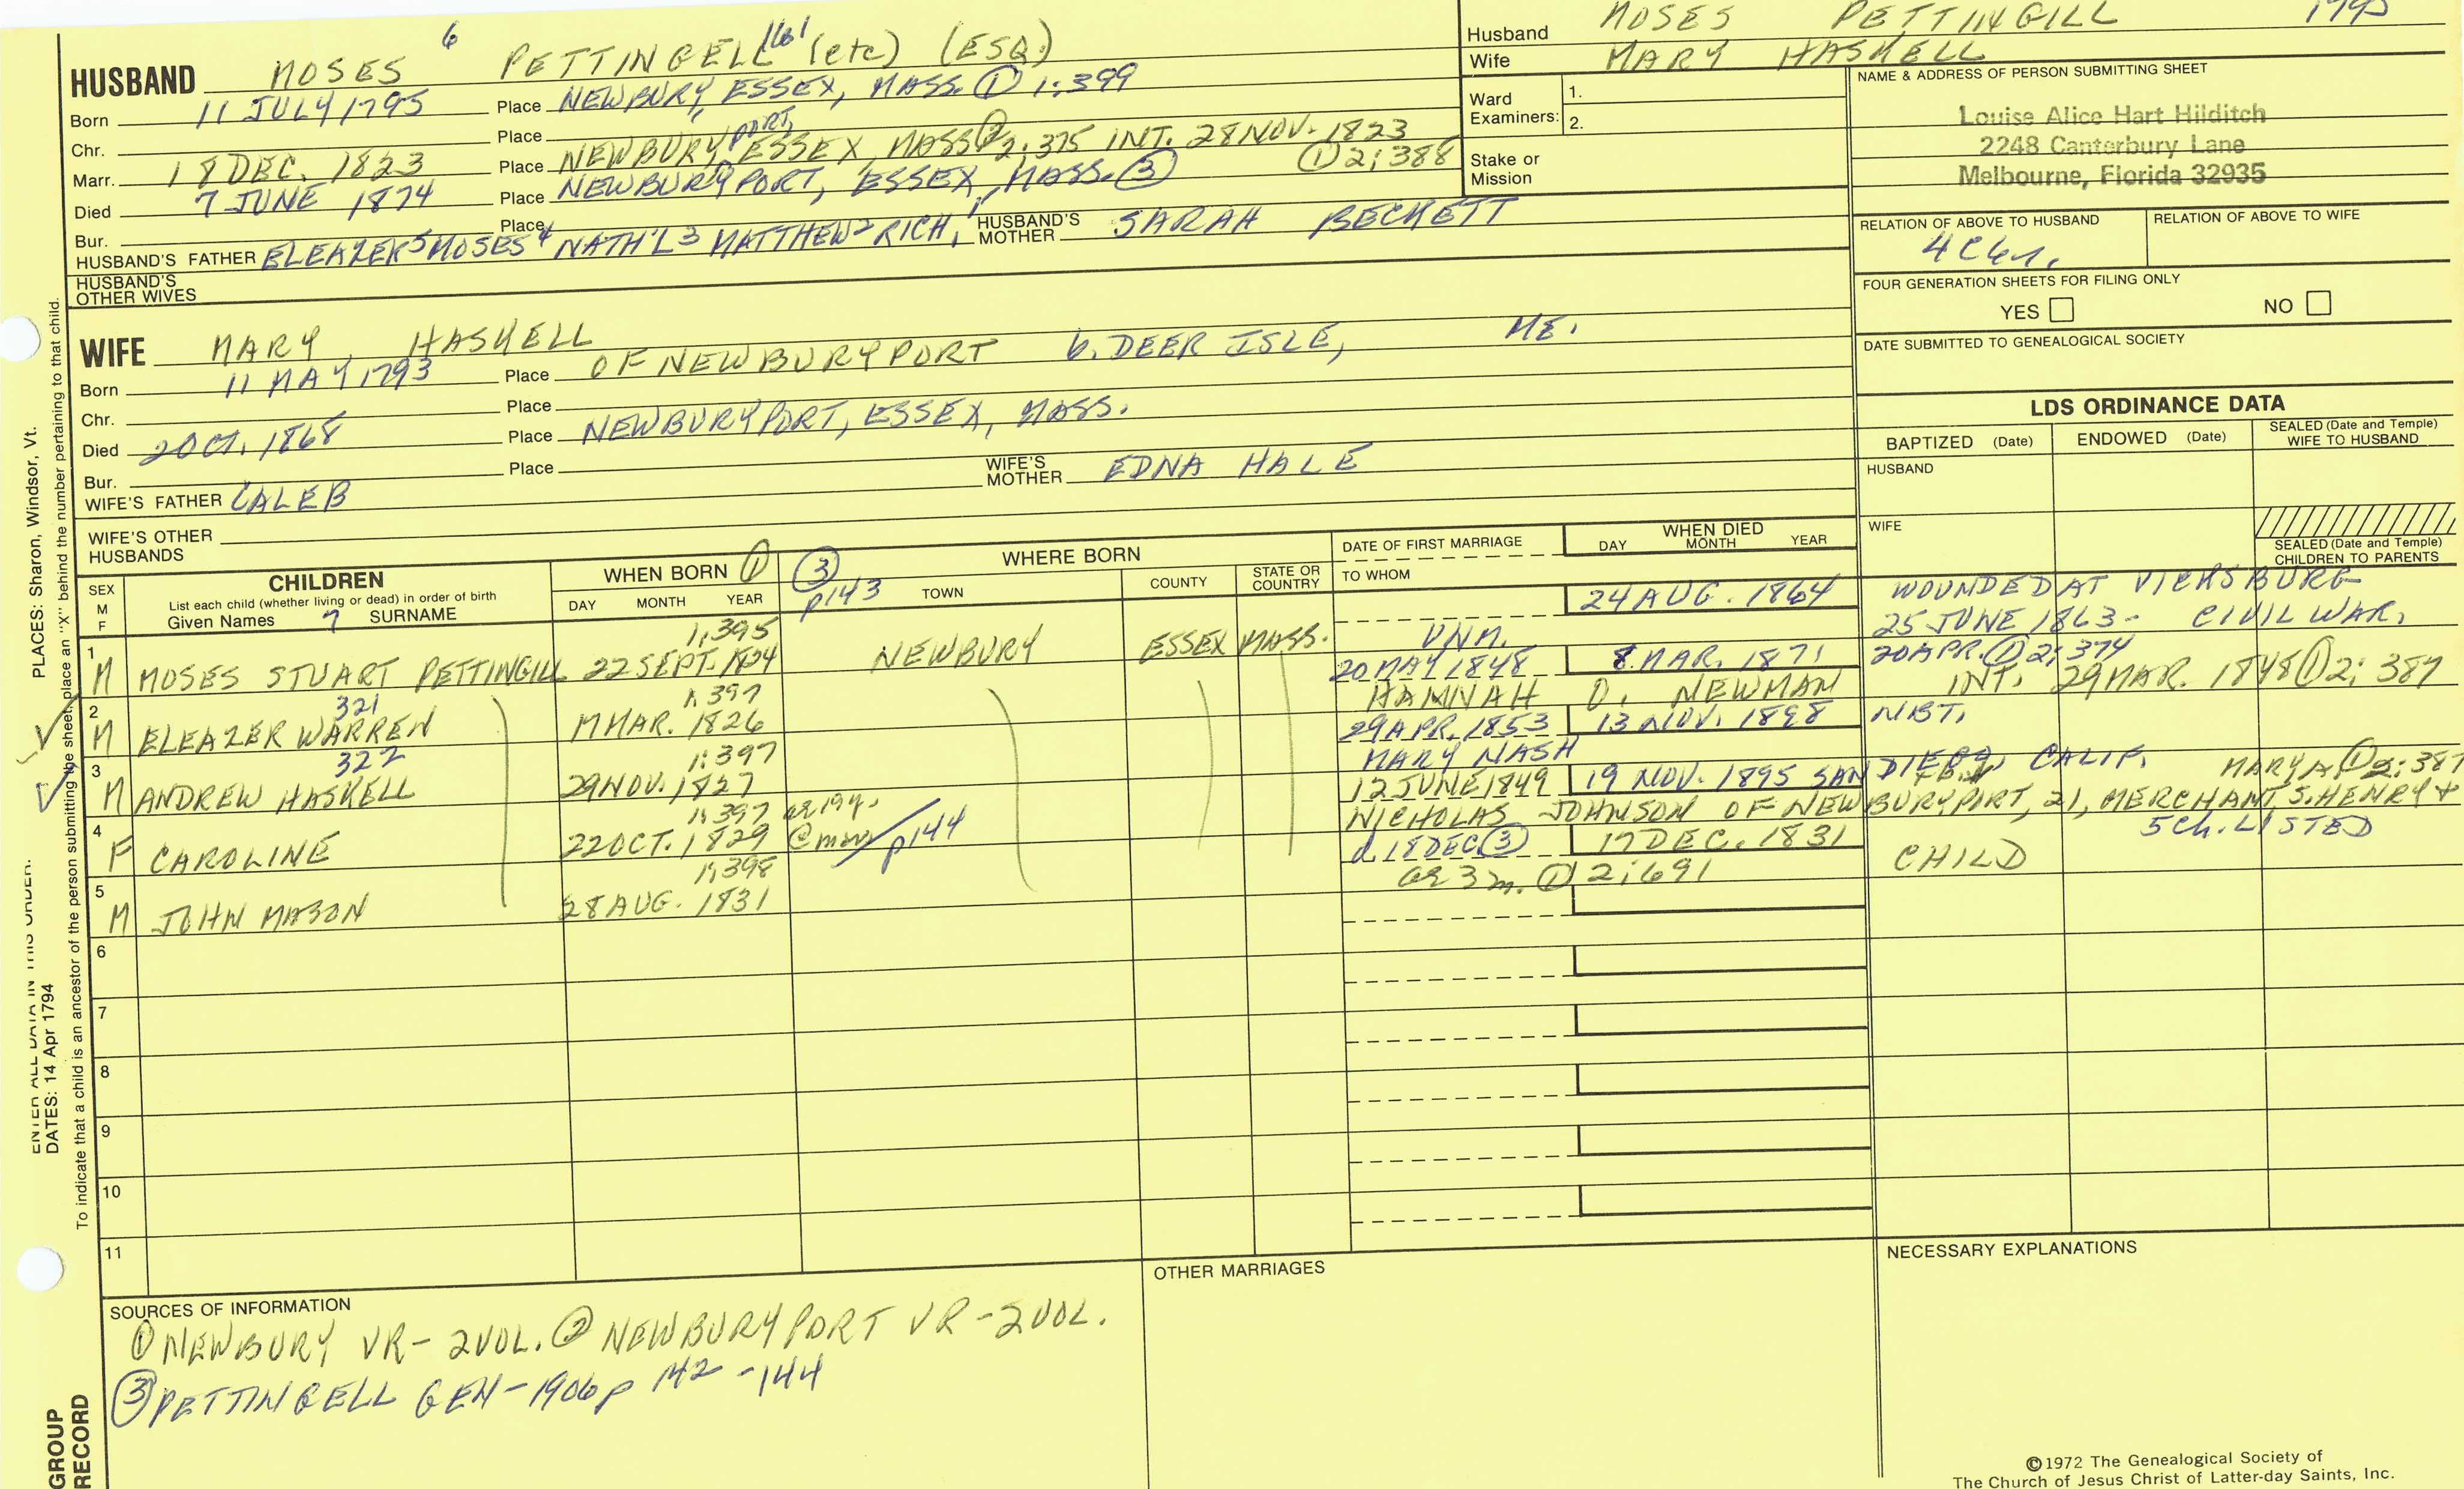 Husband MOSES PETTINGILL 1795
Wife MARY HASKELL
Ward Examiners: 1.
2.
Stake or Mission
NAME & ADDRESS OF PERSON SUBMITTING SHEET
Louise Alice Hart Hilditch
2248 Canterbury Lane
Melbourne, Florida 32935
RELATION OF ABOVE TO HUSBAND RELATION OF ABOVE TO WIFE
FOUR GENERATION SHEETS FOR FILING ONLY
YES NO
DATE SUBMITTED TO GENEALOGICAL SOCIETY
HUSBAND MOSES 6 PETTINGELL 161 (etc) (ESQ.)
Born 11 JULY 1795 Place NEWBURY, ESSEX, MASS. ① 1:399
Chr. Place
Marr. 18 DEC. 1823 Place NEWBURYPORT, ESSEX, MASS ② 2:375 INT. 28 NOV. 1823 ① 2:388
Died 7 JUNE 1874 Place NEWBURYPORT, ESSEX, MASS. ③
Bur. Place
HUSBAND'S FATHER ELEAZER 5 MOSES 4 NATH'L 3 MATTHEW 2 RICH. 1 HUSBAND'S MOTHER SARAH BECKETT
HUSBAND'S OTHER WIVES
WIFE MARY HASKELL
Born 11 MAY 1793 Place OF NEWBURYPORT b. DEER ISLE, ME.
Chr. Place
Died 2 OCT. 1868 Place NEWBURYPORT, ESSEX, MASS.
Bur. Place
WIFE'S FATHER CALEB WIFE'S MOTHER EDNA HALE
WIFE'S OTHER HUSBANDS
LDS ORDINANCE DATA
BAPTIZED (Date) ENDOWED (Date) SEALED (Date and Temple) WIFE TO HUSBAND
HUSBAND
WIFE
SEALED (Date and Temple) CHILDREN TO PARENTS
SEX M F
CHILDREN
List each child (whether living or dead) in order of birth
Given Names 7 SURNAME
WHEN BORN ①
DAY MONTH YEAR
③ p143
WHERE BORN
TOWN COUNTY STATE OR COUNTRY
DATE OF FIRST MARRIAGE
TO WHOM
WHEN DIED
DAY MONTH YEAR
1:395 24 AUG. 1864 WOUNDED AT VICKSBURG
1 M MOSES STUART PETTINGILL 22 SEPT. 1824 NEWBURY ESSEX MASS. UNM. 25 JUNE 1863 - CIVIL WAR.
321 1:397 20 MAY 1848 8 MAR. 1871 20 APR. ① 2:374
2 M ELEAZER WARREN 17 MAR. 1826 HANNAH O. NEWMAN INT. 29 MAR. 1848 ① 2:387
322 1:397 29 APR. 1853 13 NOV. 1898 NBT.
3 M ANDREW HASKELL 29 NOV. 1827 MARY NASH
1:397 ae 19y. 12 JUNE 1849 19 NOV. 1895 SAN DIEGO, CALIF. MARY A. ① 2:387
4 F CAROLINE 22 OCT. 1829 @ marr p144 NICHOLAS JOHNSON OF NEWBURYPORT, 21, MERCHANT, S. HENRY &
5 Ch. LISTED
1:398 d. 18 DEC ③ 17 DEC. 1831 CHILD
5 M JOHN MASON 28 AUG. 1831 ae 3 m. ① 2:691
6
7
8
9
10
11
SOURCES OF INFORMATION
① NEWBURY VR - 2 VOL. ② NEWBURYPORT VR - 2 VOL.
③ PETTINGELL GEN - 1906 p 142 - 144
OTHER MARRIAGES
NECESSARY EXPLANATIONS
©1972 The Genealogical Society of
The Church of Jesus Christ of Latter-day Saints, Inc.
PLACES: Sharon, Windsor, Vt.
ENTER ALL DATA IN THIS ORDER:
DATES: 14 Apr 1794
To indicate that a child is an ancestor of the person submitting the sheet, place an "X" behind the number pertaining to that child.
GROUP
RECORD